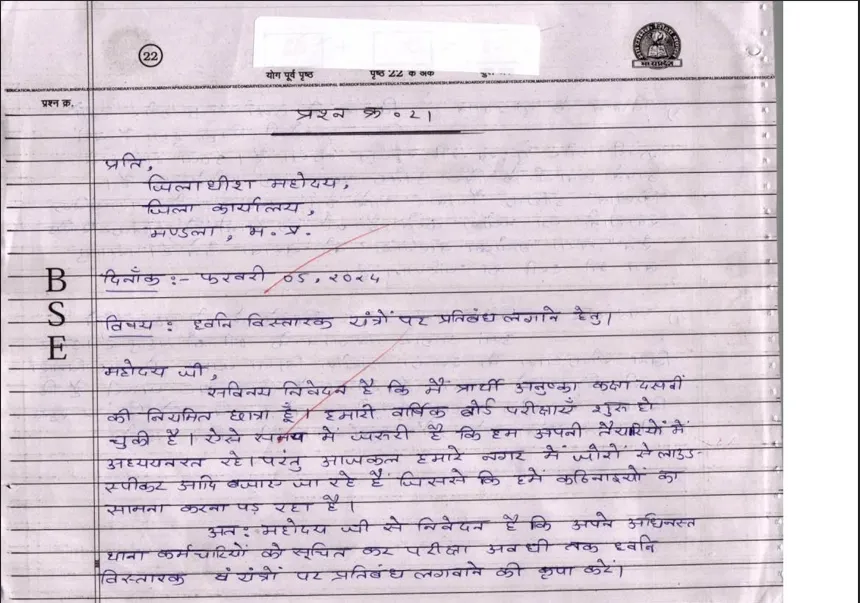 22
योग पूर्व पृष्ठ पृष्ठ 22 के अंक
मध्यप्रदेश
प्रश्न क्र.
प्रश्न क्र. 21
प्रति,
जिलाधीश महोदय,
जिला कार्यालय,
मण्डला, म. प्र.
दिनाँक :- फरवरी 05, 2024
विषय : ध्वनि विस्तारक यंत्रों पर प्रतिबंध लगाने हेतु।
महोदय जी,
सविनय निवेदन है कि मैं प्रार्थी अनुष्का कक्षा दसवीं
की नियमित छात्रा हूँ। हमारी वार्षिक बोर्ड परीक्षाएँ शुरू हो
चुकी है। ऐसे समय में जरूरी है कि हम अपनी तैयारियों में
अध्ययनरत रहे। परंतु आजकल हमारे नगर में जोरो से लाउड-
स्पीकर आदि बजाए जा रहे हैं जिससे कि हमें कठिनाइयों का
सामना करना पड़ रहा है।
अत: महोदय जी से निवेदन है कि अपने अधिनस्त
थाना कर्मचारियों को सूचित कर परीक्षा अवधी तक ध्वनि
विस्तारक यंत्रों पर प्रतिबंध लगवाने की कृपा करें।
B
S
E